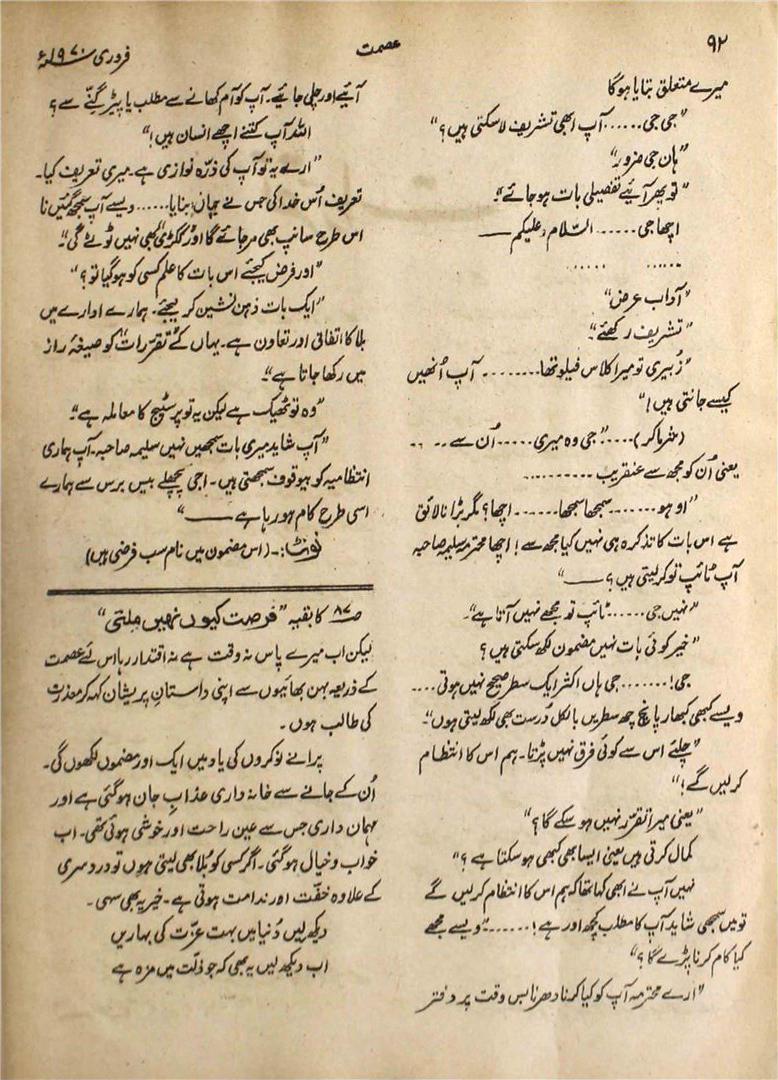 ۹۲
عصمت
فروری ۱۹۷۰ء
میرے متعلق بتایا ہوگا
"جی جی...... آپ ابھی تشریف لا سکتی ہیں؟"
"ہاں جی ضرور"
"تو پھر آیئے تفصیلی بات ہو جائے"۔
اچھا جی...... السّلام وعلیکم ——
...... ......
"آداب عرض"
"تشریف رکھئے"۔
"زُبیری تو میرا کلاس فیلو تھا........ آپ اُنھیں
کیسے جانتی ہیں!"
(شرما کر)...."جی وہ میری..... اُن سے .. ..
یعنی اُن کو مجھ سے عنقریب ..........
"او ہو....... سمجھا سمجھا...... اچھا؟ مگر بڑا نالائق
ہے اس بات کا تذکرہ ہی نہیں کیا مجھ سے! اچھا محترمہ سلیمہ صاحبہ
آپ ٹائپ تو کر لیتی ہیں؟ ——"
"نہیں جی...... ٹائپ تو مجھے نہیں آتا ہے"۔
"خیر کوئی بات نہیں مضمون لکھ سکتی ہیں؟
جی!....... جی ہاں اکثر ایک سطر صحیح نہیں ہوتی....
ویسے کبھی کبھار پانچ چھ سطریں بالکل دُرست بھی لکھ لیتی ہوں"۔
"چلئے اس سے کوئی فرق نہیں پڑتا۔ ہم اس کا انتظام
کر لیں گے!"
"یعنی میرا تقرّر نہیں ہو سکے گا؟"
کمال کرتی ہیں یعنی ایسا بھی کبھی ہو سکتا ہے؟"
نہیں آپ نے ابھی کہا تھا کہ ہم اس کا انتظام کر لیں گے
تو میں سمجھی شاید آپ کا مطلب کچھ اور ہے!......"ویسے مجھے
کیا کام کرنا پڑے گا؟"
"ارے محترمہ آپ کو کیا کرنا دھرنا بس وقت پر دفتر
آیئے اور چلی جایئے۔ آپ کو آم کھانے سے مطلب یا پیڑ گننے سے؟
اللہ آپ کتنے اچھے انسان ہیں!"
"ارے یہ تو آپ کی ذرّہ نوازی ہے۔ میری تعریف کیا۔
تعریف اُس خدا کی جس نے جہان بنایا...... ویسے آپ سمجھ گئیں نا
اس طرح سانپ بھی مر جائے گا اور لکڑی بھی نہیں ٹوٹے گی"۔
"اور فرض کیجئے اس بات کا علم کسی کو ہو گیا تو؟"
"ایک بات ذہن نشین کر لیجئے۔ ہمارے ادارے میں
بلا کا اتفاق اور تعاون ہے۔ یہاں کے تقررّات کو صیغۂ راز
میں رکھا جاتا ہے"۔
"وہ تو ٹھیک ہے لیکن یہ تو پرسٹیج کا معاملہ ہے"۔
"آپ شاید میری بات سمجھیں نہیں سلیمہ صاحبہ۔ آپ ہماری
انتظامیہ کو بیوقوف سمجھتی ہیں۔ اجی پچھلے بیس برس سے ہمارے
اسی طرح کام ہو رہا ہے ——"
نوٹ:۔ (اس مضمون میں نام سب فرضی ہیں)
صـ۸۷ کا بقیہ "فرصت کیوں نہیں مِلتی"
لیکن اب میرے پاس نہ وقت ہے نہ اقتدار رہا اس لئے عصمت
کے ذریعہ بہن بھائیوں سے اپنی داستانِ پریشان کہہ کر معذرت
کی طالب ہوں۔
پرانے نوکروں کی یاد میں ایک اور مضموں لکھوں گی۔
اُن کے جانے سے خانہ داری عذابِ جان ہو گئی ہے اور
مہمان داری جس سے عین راحت اور خوشی ہوئی تھی۔ اب
خواب و خیال ہو گئی۔ اگر کسی کو بُلا بھی لیتی ہوں تو دردسری
کے علاوہ خفّت اور ندامت ہوتی ہے۔ خیر یہ بھی سہی۔
دیکھ لیں دُنیا میں بہت عزّت کی بہاریں
اب دیکھ لیں یہ بھی کہ جو ذلّت میں مزہ ہے